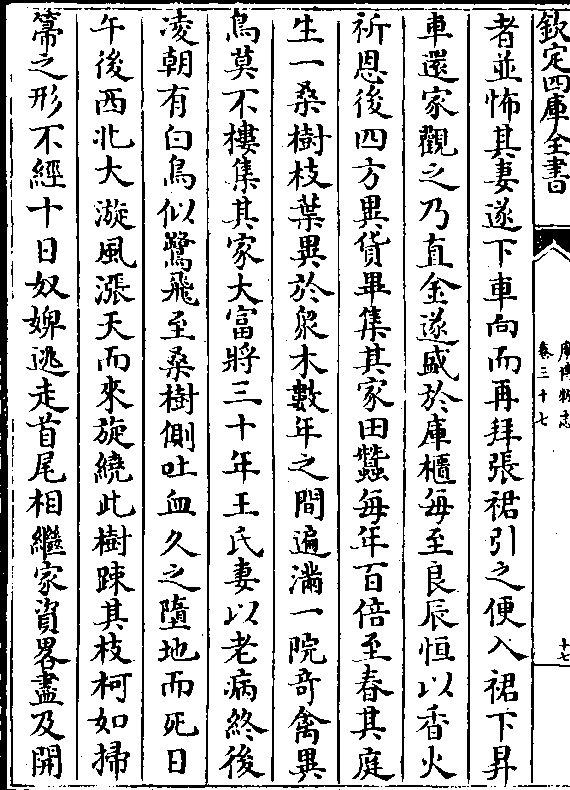 欽定四庫全書
廣博物志
卷三十七
十七
者並怖其妻遂下車向而再拜張裙引之便入裙下昇
車還家觀之乃直金遂盛於庫櫃每至良辰恒以香火
祈恩後四方異貨畢集其家田蠶每年百倍至春其庭
生一桑樹枝葉異於衆木數年之間遍滿一院奇禽異
鳥莫不棲集其家大富將三十年王氏妻以老病終後
凌朝有白鳥似鷺飛至桑樹側吐血久之墮地而死日
午後西北大漩風漲天而來旋繞此樹踈其枝柯如掃
箒之形不經十日奴婢逃走首尾相繼家資畧盡及開